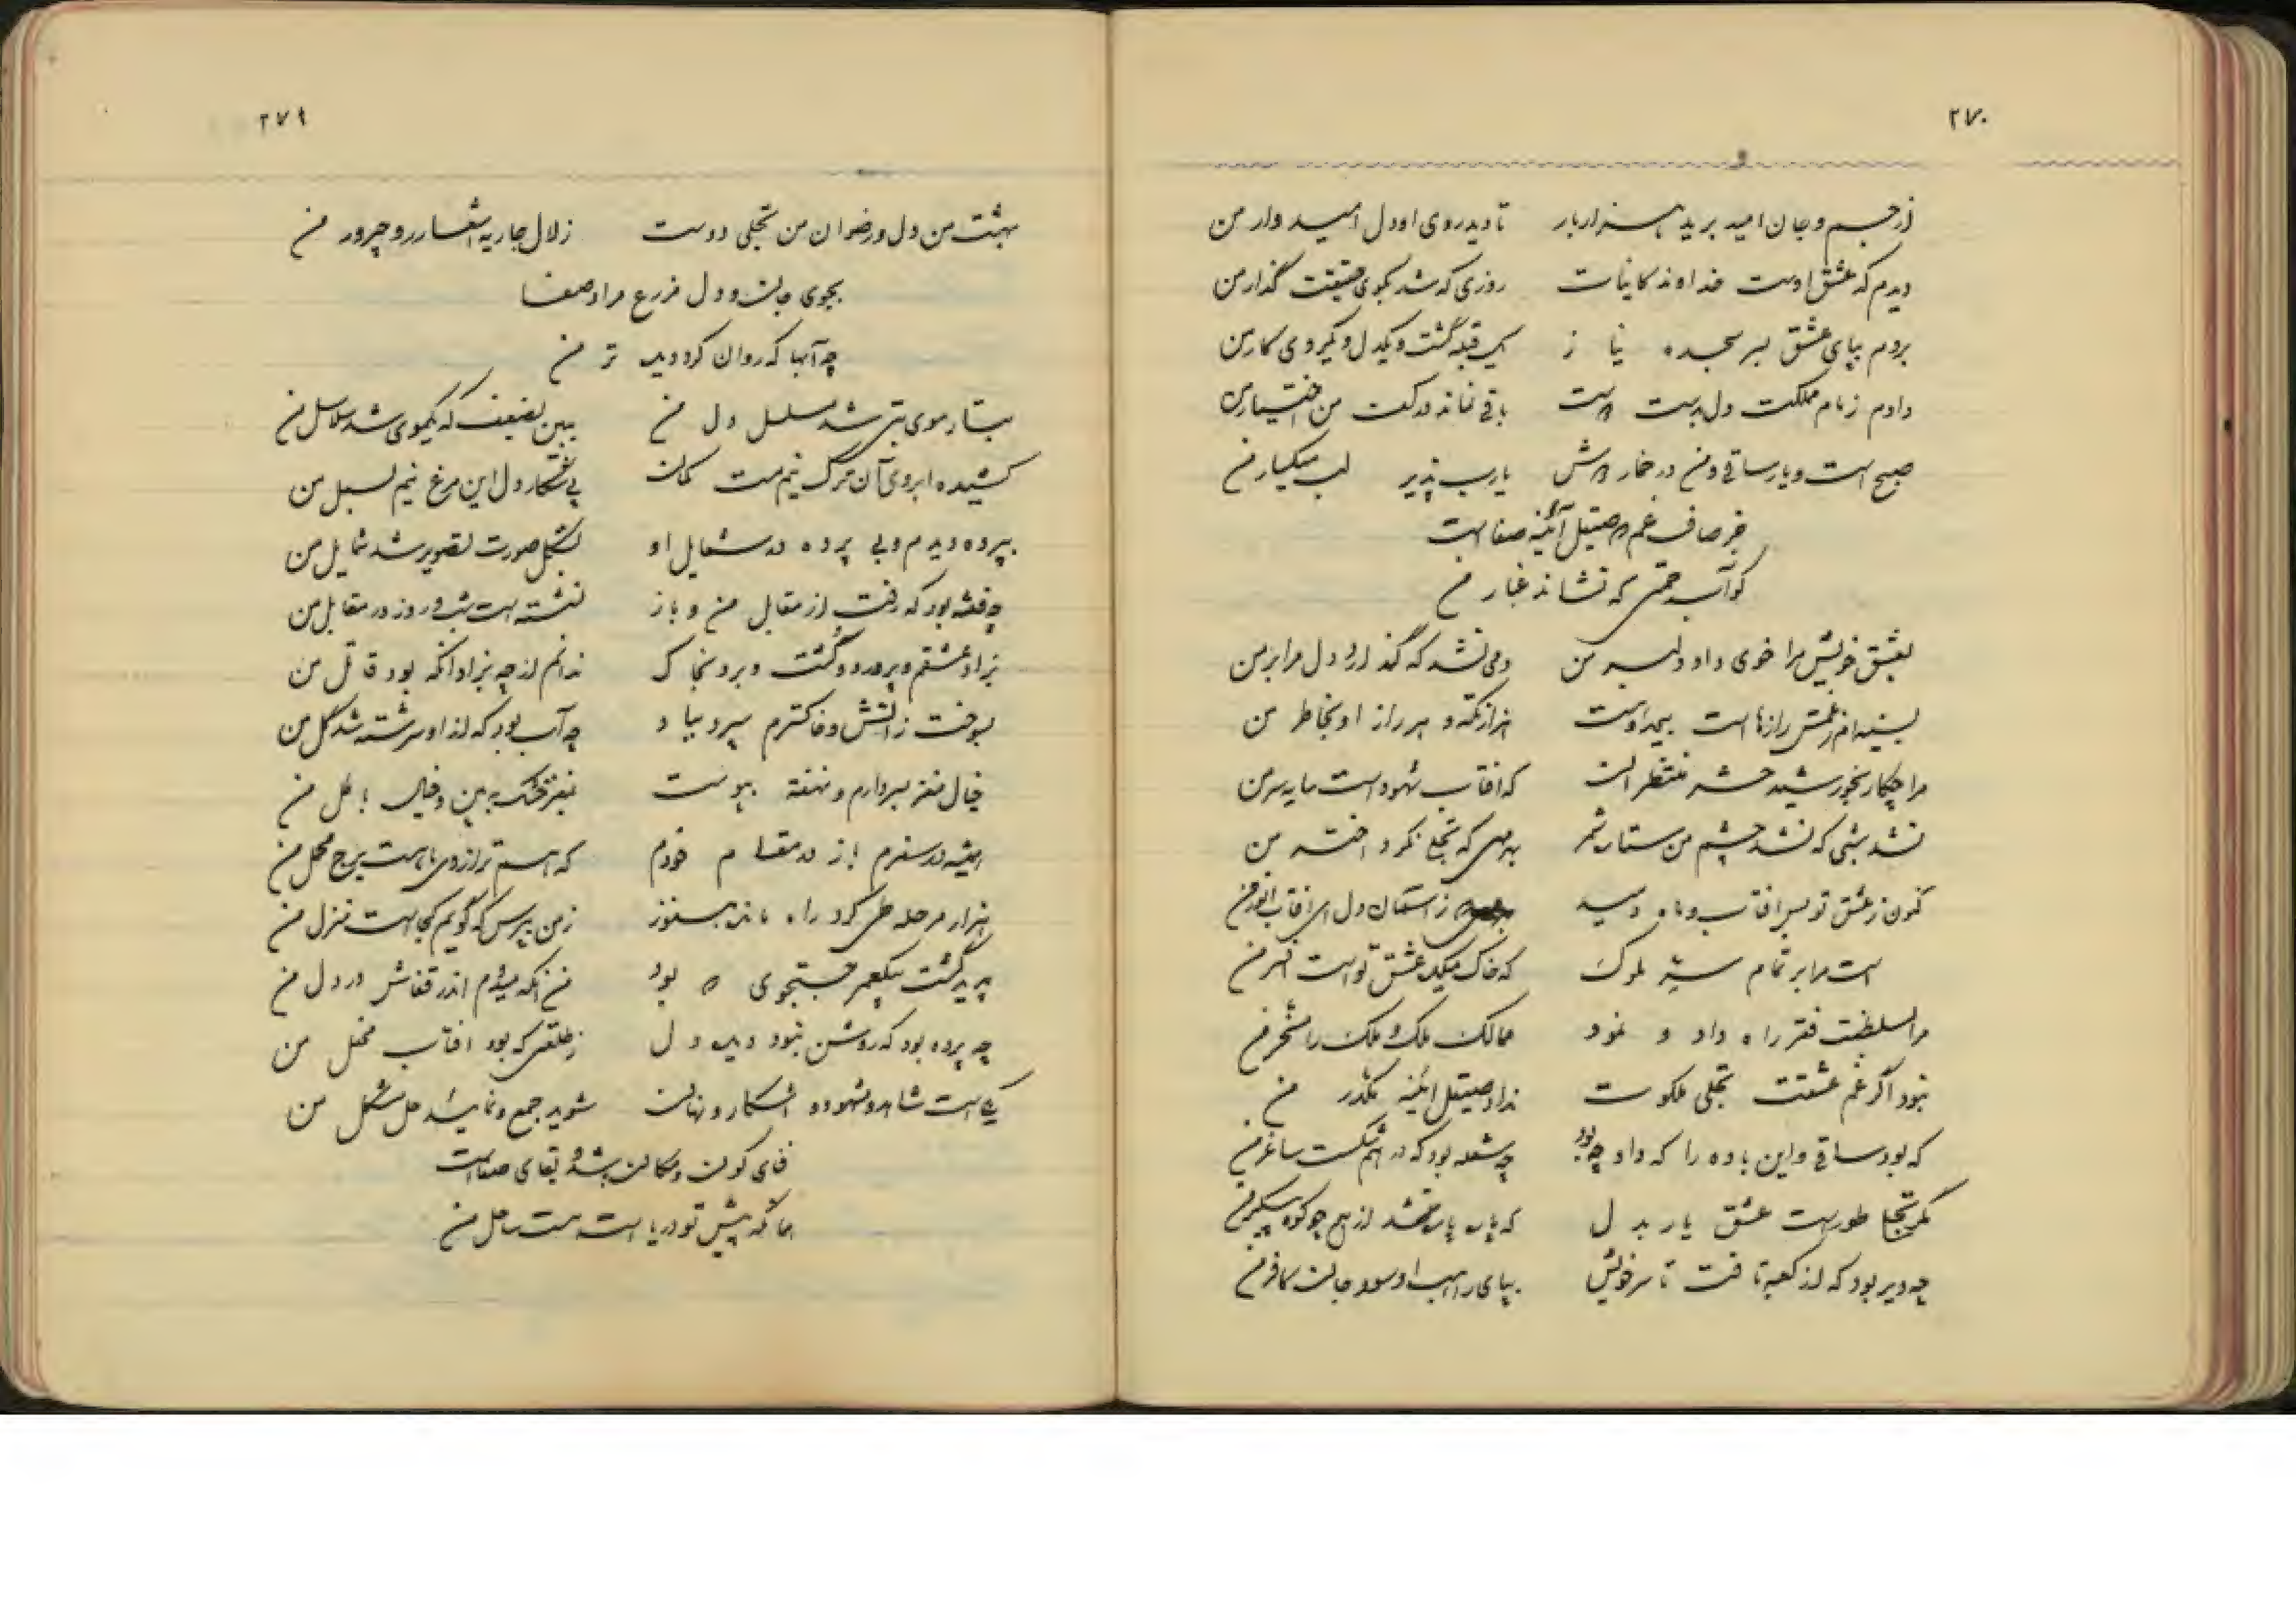 ۲۷۰
از جسم و جان امید برید هزار بار تا دید روی او دل امیدوار من
دیدم که عشق اوست خداوند کاینات روزی که شد بکوی حقیقت گذار من
بردم بپای عشق بسر سجده نیاز یک قبله گشت و یکدل و یکروی کار من
دادم زمام مملکت دل بدست دوست باقی نماند در کف من اختیار من
صبح است و یار ساقی و من در خمار یارب پذیر لب میگسار من
جز صاف غم صیقل آئینه صفا نیست
کو آب که نشاند غبار من
بعشق خویش مرا خوی داد دلبر من دمی نشد که گذارد دل مرا بر من
بسینه از غمش رازها است هزار نکته و هر راز او بخاطر من
مرا چکار بخورشید حشر منتظران که افتاب شهود است سایه سر من
نشد شبی که نشد چشم من ستاره شمر که تجلی نکرد اختر من
کنون ز عشق تو بس افتاب و ماه دمید ز آسمان دل ای افتاب انور من
است مرا بر تمام ملوک که خاک میکده عشق تو است افسر من
مرا بسلطنت فقر راه داد و نمود ممالک ملک و ملک را مسخر من
نبود اگر غم عشقت تجلی ملکوت نداد صیقل ائینه مکدر من
که بود ساقی و این باده را که داد چه بود چه شعله بود که درهم شکست ساغر من
مگر تجلی طور است عشق یار بدل که پاره پاره شد از هم چو کوه پیکر من
چه دیر بود که از کعبه تافت تا سر خویش بپای راهب او سود جان کافر من
۲۷۹
بهشت من دل و رضوان من تجلی دوست زلال جاریه اشعار روح پرور من
بجوی جان و دل مزرع مراد صفا
چه آبها که روان کرد دیده تر من
بتار موی بتی شد مسلسل دل من ببین لضعف که یکموی شد سلاسل من
کشیده ابروی آن ترک نیم مست کمان پی شکار دل این مرغ نیم بسمل من
بپرده دیدم و بی پرده در شمایل او بشکل صورت تصویر شد شمایل من
چه فتنه بود که رفت از مقابل من و باز نشسته است شب و روز در مقابل من
بزاد عشقم و پرورد و کشت و برد بخاک ندانم از چه بزاد انکه بود قاتل من
بسوخت ز آتش و خاکسترم سپرد بباد چه آب بود که از او سرشته شد گل من
خیال مغز بسر دارم و نهفته بپوست بمغز خشک ببین و خیال باطل من
همیشه در سفرم باز در مقام خودم
هزار مرحله طی کرد راه ماند هنوز ز من مپرس که گویم کجاست منزل من
پدید گشت که یکعمر جستجوی بود من انکه میدوم اندر قفاش در دل من
چه پرده بود که روشن نبود دیده دل ز طلعتی که بود افتاب محفل من
یکی است شاهد و مشهود و اشکار و نهان شوید جمع و نمائید حل مشکل من
فنای کون و مکان شد بقای صفاست
هما که پیش تو دریا است هست ساحل من